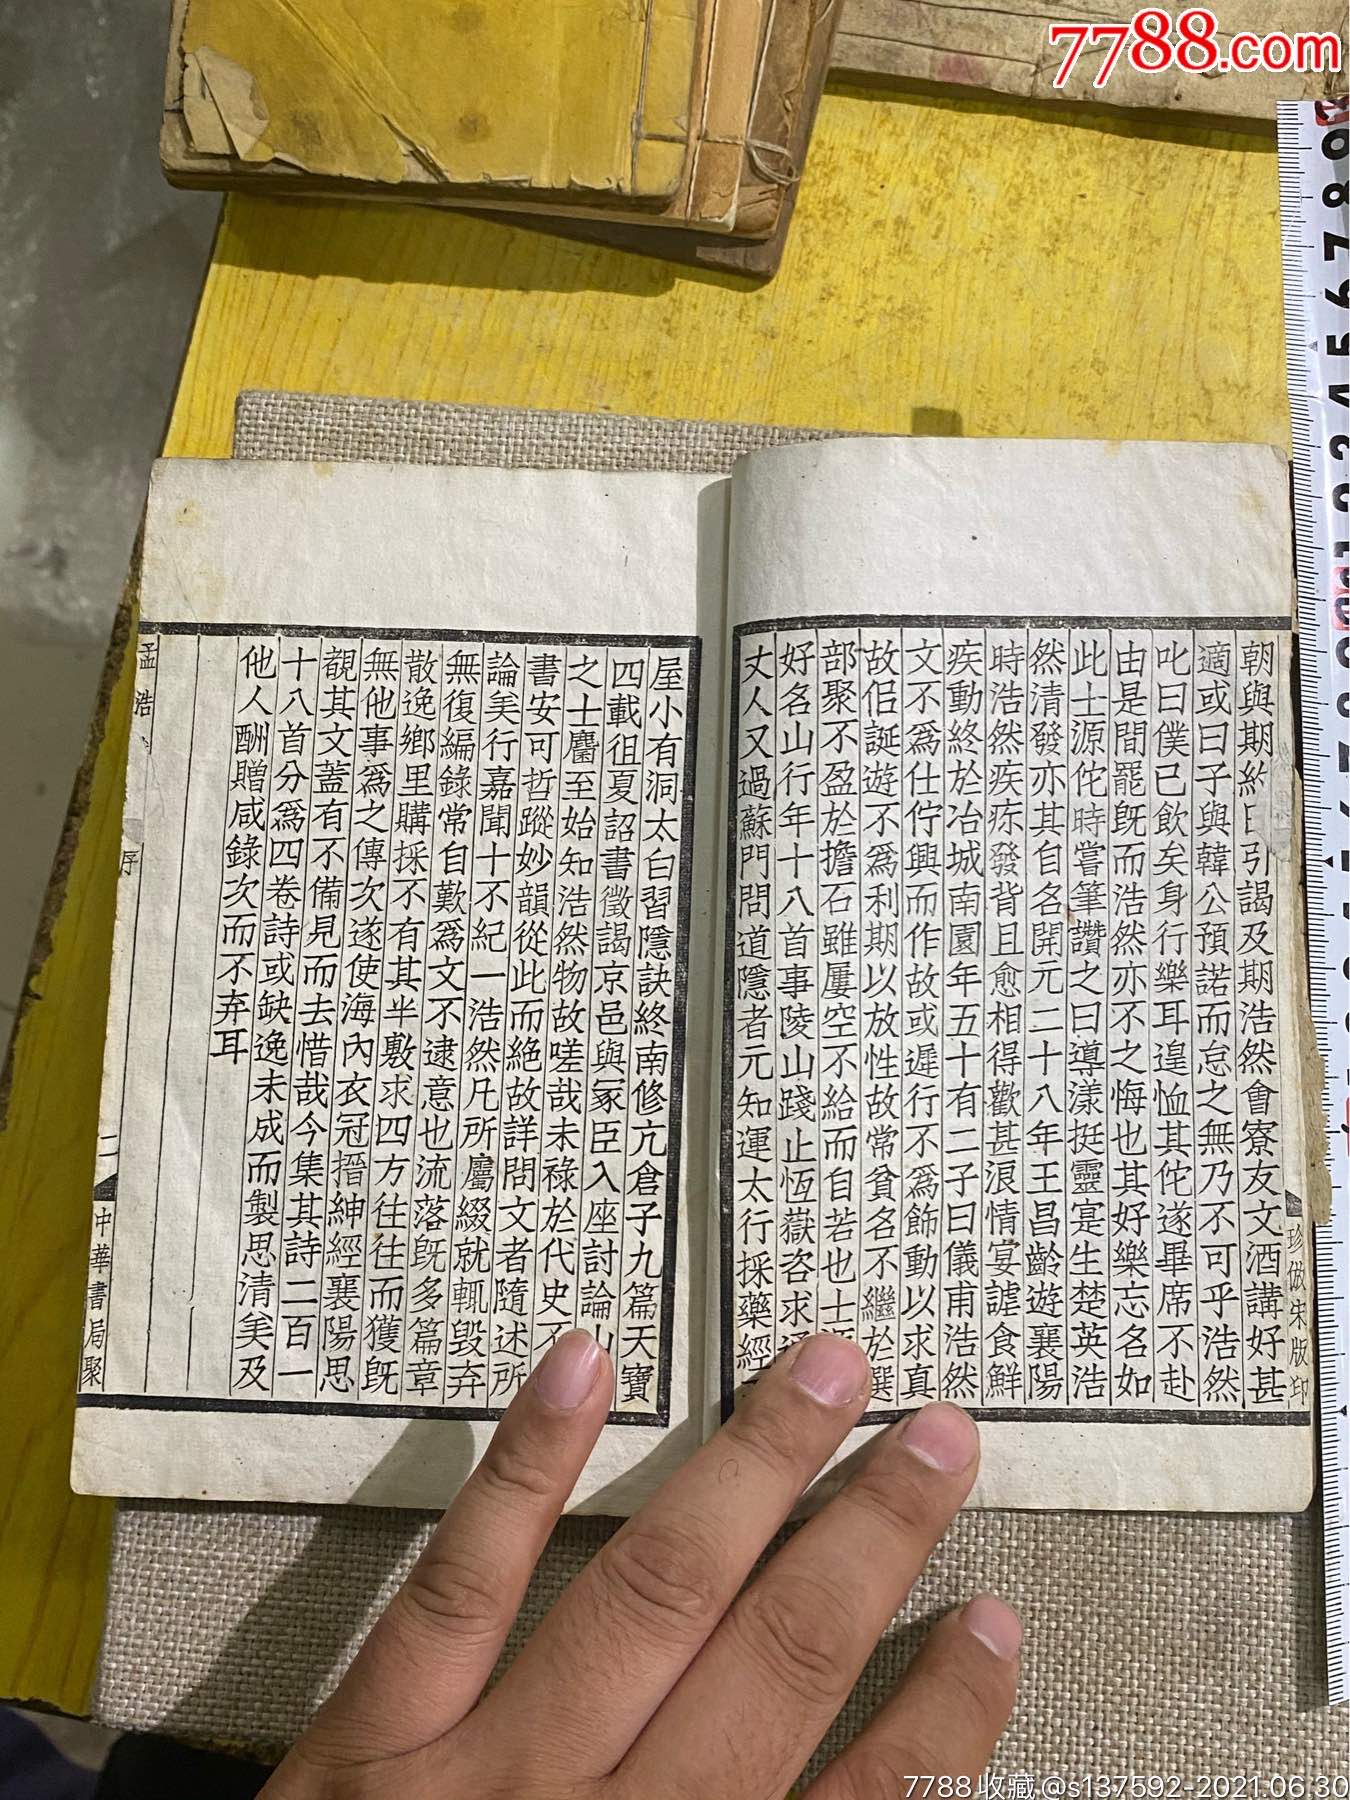 7788.com
朝與期約日引謁及期浩然會寮友文酒講好甚
適或曰子與韓公預諾而怠之無乃不可乎浩然
叱曰僕已飲矣身行樂耳遑恤其佗遂畢席不赴
由是間罷既而浩然亦不之悔也其好樂忘名如
此士源佗時嘗筆讚之曰導漾挺靈寔生楚英浩
然清發亦其自名開元二十八年王昌齡遊襄陽
時浩然疾疹發背且愈相得歡甚浪情宴謔食鮮
疾動終於冶城南園年五十有二子曰儀甫浩然
文不爲仕佇興而作故或遲行不爲飾動以求真
故似誕遊不爲利期以放性故常貧名不繼於選
部聚不盈於擔石雖屢空不給而自若也士
好名山行年十八首事陵山踐止恆嶽咨求通
丈人又過蘇門問道隱者元知運太行採藥經
珍倣宋版印
屋小有洞太白習隱訣終南修亢倉子九篇天寶
四載徂夏詔書徵謁京邑與冢臣入座討論山
之士麏至始知浩然物故嗟哉未祿於代史不
書安可哲蹤妙韻從此而絕故詳問文者隨述所
論美行嘉聞十不紀一浩然凡所屬綴就輒毀弃
無復編錄常自歎爲文不逮意也流落既多篇章
散逸鄉里購採不有其半敷求四方往往而獲既
無他事爲之傳次遂使海內衣冠搢紳經襄陽思
覩其文蓋有不備見而去惜哉今集其詩二百一
十八首分爲四卷詩或缺逸未成而製思清美及
他人酬贈咸錄次而不弃耳
孟浩 序 二 中華書局聚
7788收藏@s137592-2021.06.30